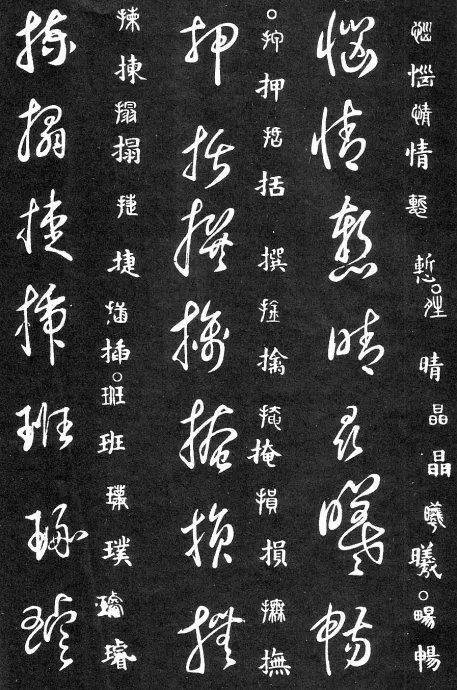 惱惱情情慙慙○晴晴晶晶曦曦○暢暢
惱情慙晴晶曦暢
○押押括括撰擒擒掩掩損損撫撫
押括撰擒掩損撫
揀揀搨搨捷捷插插○班班璞璞璿璿
揀搨捷插班璞璿